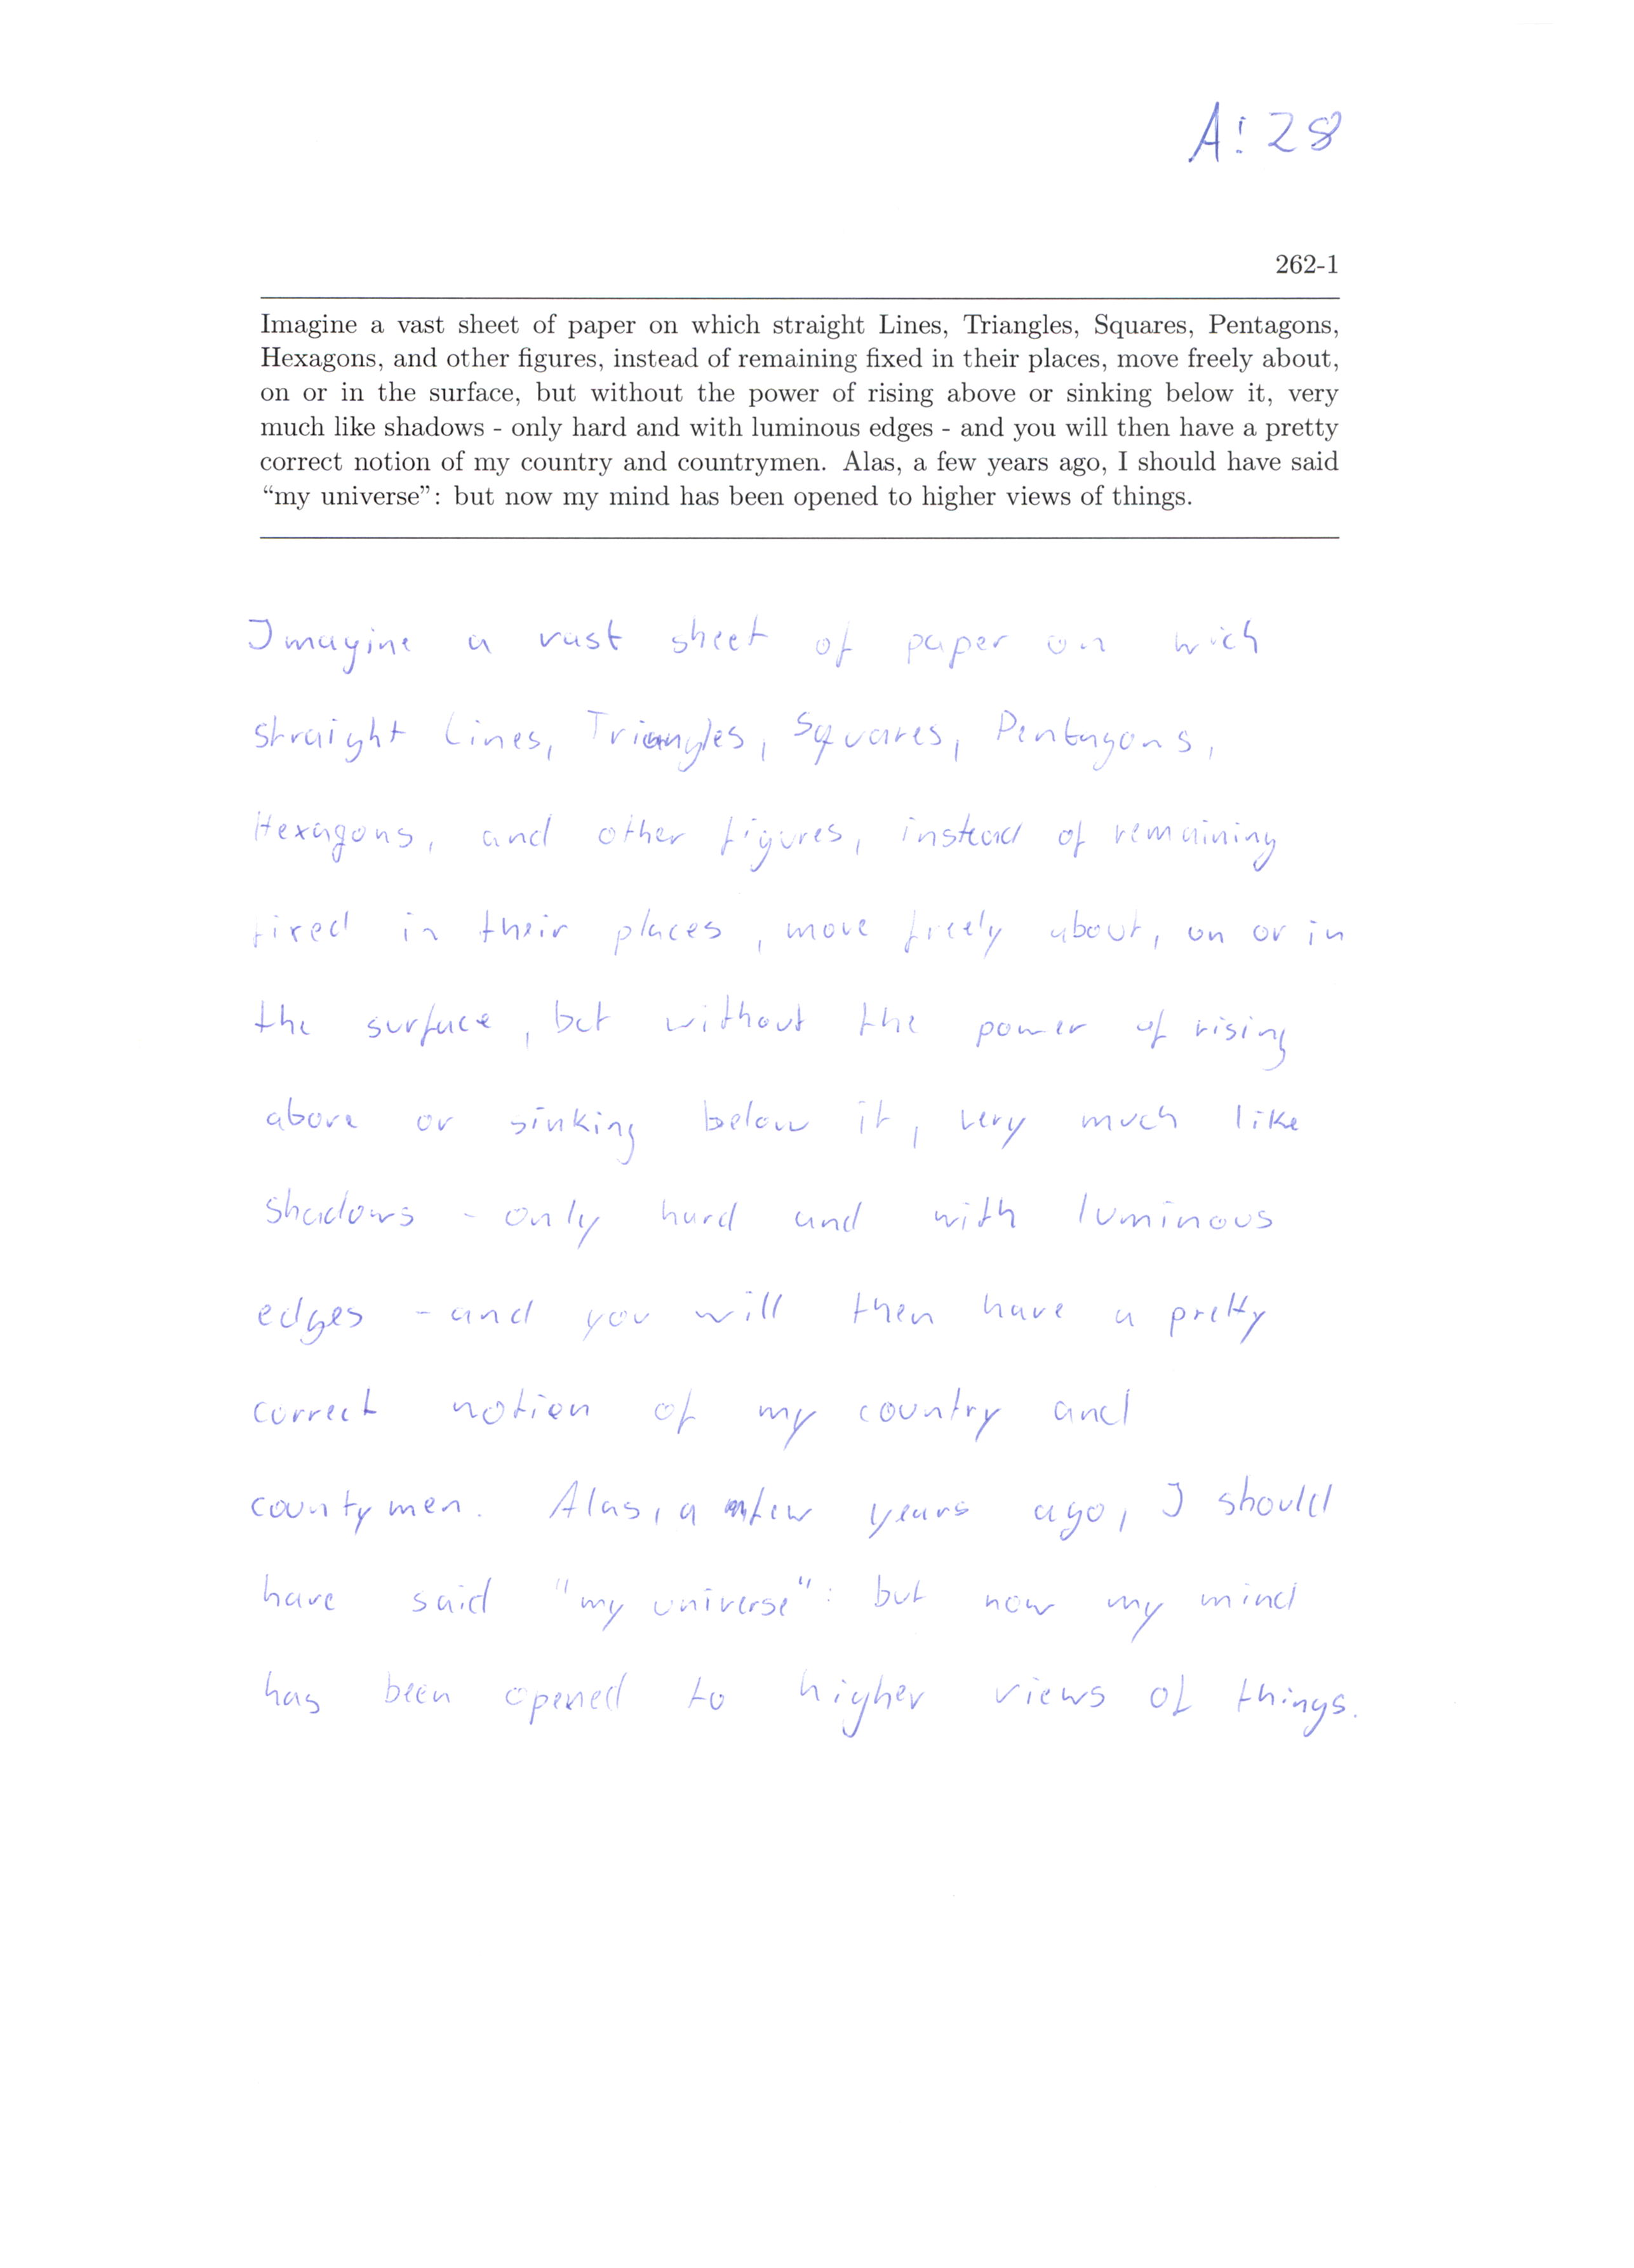 A! 28
262-1
Imagine a vast sheet of paper on which straight Lines, Triangles, Squares, Pentagons,
Hexagons, and other figures, instead of remaining fixed in their places, move freely about,
on or in the surface, but without the power of rising above or sinking below it, very
much like shadows - only hard and with luminous edges - and you will then have a pretty
correct notion of my country and countrymen. Alas, a few years ago, I should have said
“my universe”: but now my mind has been opened to higher views of things.
Imagine a vast sheet of paper on wich
straight Lines, Triangles, Squares, Pentagons,
Hexagons, and other figures, instead of remaining
fixed in their places, move freely about, on or in
the surface, but without the power of rising
above or sinking below it, very much like
shadows - only hard and with luminous
edges - and you will then have a pretty
correct notion of my country and
countymen. Alas, a few years ago, I should
have said "my universe": but now my mind
has been opened to higher views of things.